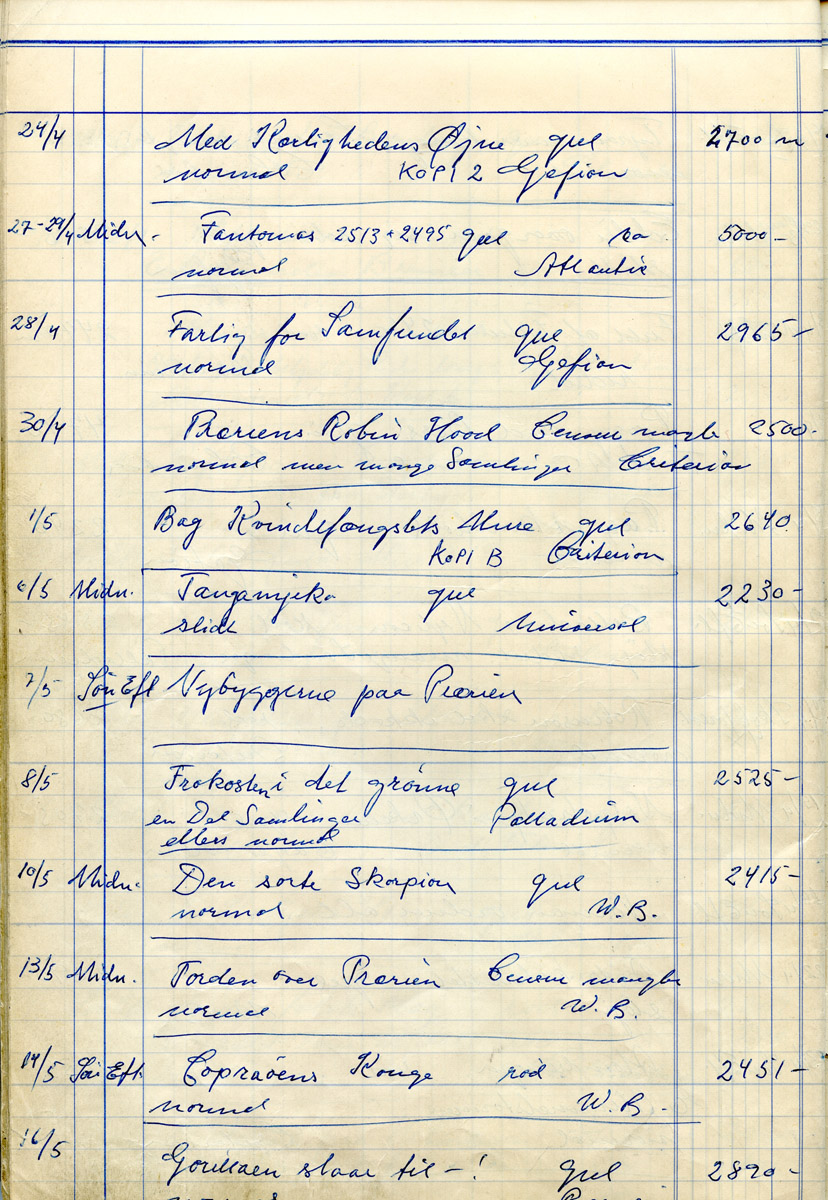 24/4 Med Kærlighedens Øjne gul 2700 m
normal KOPI 2 Gefion
27-29/4 Midn. Fantomas 2513 + 2495 gul ca 5000 -
normal Atlantic
28/4 Farlig for Samfundet gul 2965 -
normal Gefion
30/4 Præriens Robin Hood Censur mangle 2500 -
normal men mange Samlinger Criterion
1/5 Bag Kvindefængslets Mure gul 2640
KOPI B Criterion
6/5 Midn. Tanganjika gul 2230 -
slidt Universal
7/5 Søn Eft Nybyggerne paa Prærien
8/5 Frokosten i det grønne gul 2525 -
en Del Samlinger Palladium
ellers normal
10/5 Midn. Den sorte Skorpion gul 2415 -
normal W.B.
13/5 Midn. Torden over Prærien Censur mangler
normal W.B.
14/5 Søn Eft. Copraøens Konge rød 2451 -
normal W.B.
16/5
Gorillaen slaar til - ! gul 2890 -